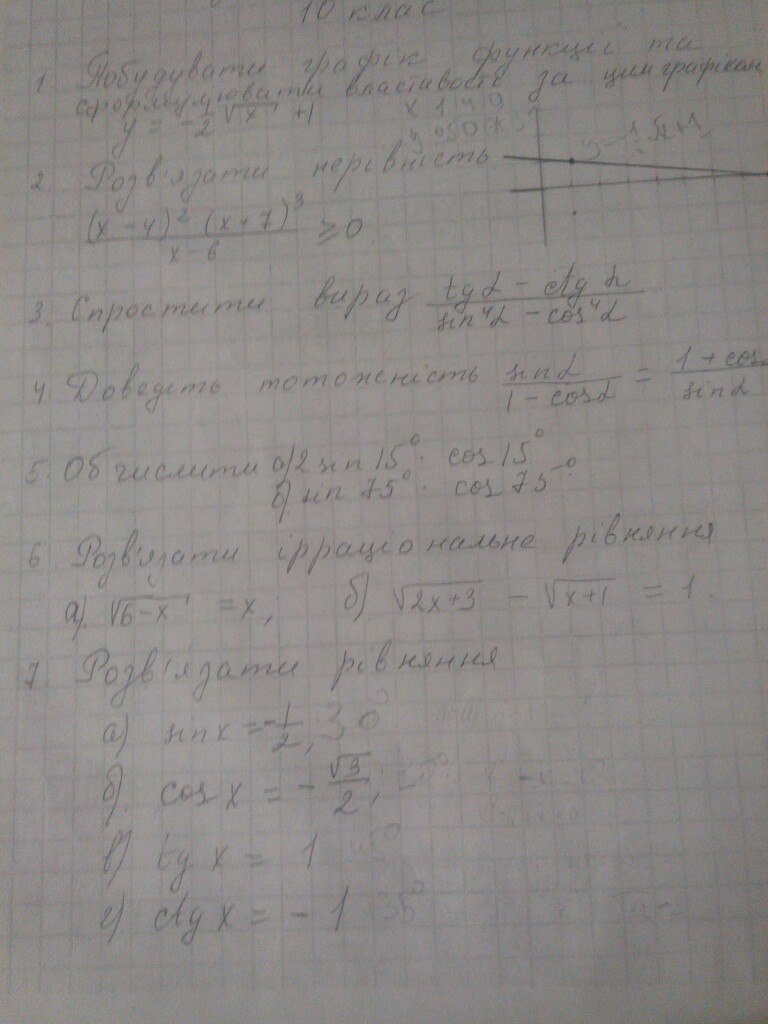 10 клас
1 Побудувати графік функції та
сформулювати властивость за цим графіком
y = -1/2 √x + 1
x 1 4 9
y 0,5 0
y = -1/2 √x + 1
2 Розв'язати нерівність
(x - 4)² (x + 7)³ / x - 6 ≥ 0
3. Спростити вираз tg α - ctg α / sin⁴α - cos⁴α
4 Доведіть тотожність sin α / 1 - cos α = 1 + cos / sin α
5. Обчислити а) 2 sin 15° · cos 15°
б) sin 75° · cos 75°
6 Розв'язати ірраціональне рівняння
а). √6-x = x; б). √2x+3 - √x+1 = 1.
7. Розв'язати рівняння
а) sin x = -1/2; 30°
б). cos x = - √3/2;
в) tg x = 1 45°
г) ctg x = - 1 35°